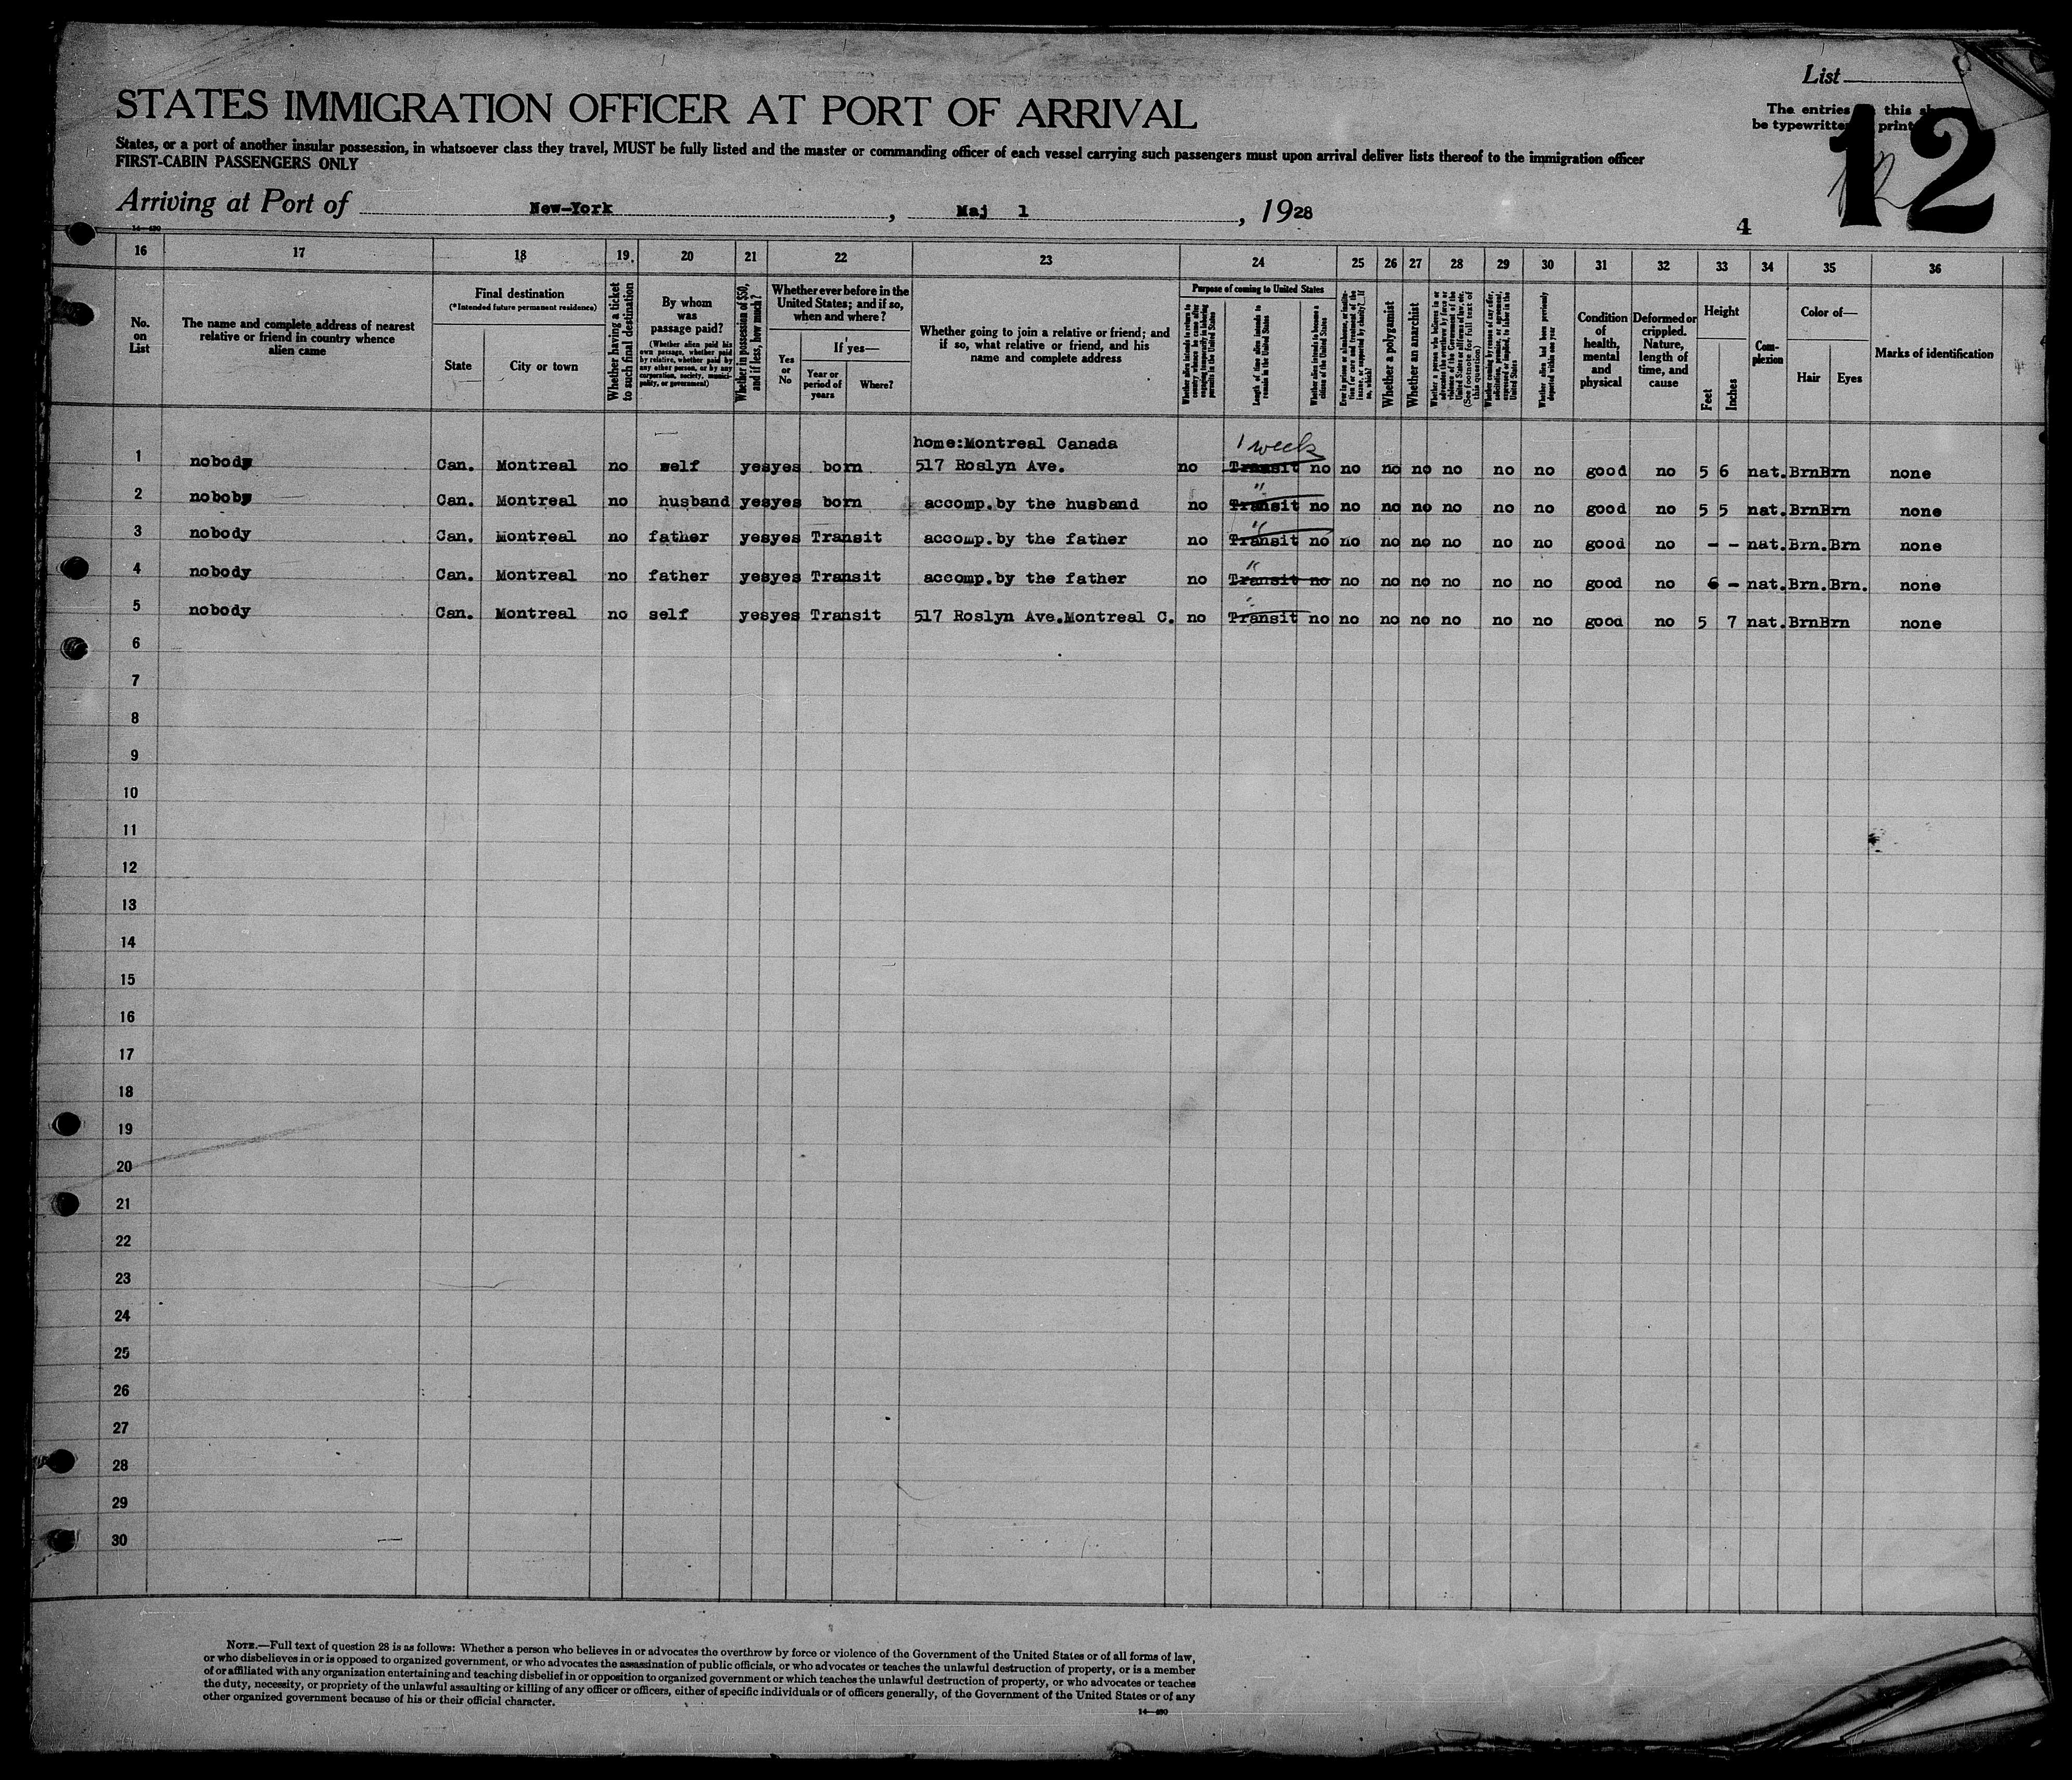 List
STATES IMMIGRATION OFFICER AT PORT OF ARRIVAL
The entries this
be typewritte print
12
States, or a port of another insular possession, in whatsoever class they travel, MUST be fully listed and the master or commanding officer of each vessel carrying such passengers must upon arrival deliver lists thereof to the immigration officer
FIRST-CABIN PASSENGERS ONLY
Arriving at Port of New-York, Maj 1, 1928
14—490
4
16 17 18 19. 20 21 22 23 24 25 26 27 28 29 30 31 32 33 34 35 36
No. on List
The name and complete address of nearest relative or friend in country whence alien came
Final destination
(*Intended future permanent residence)
State
City or town
Whether having a ticket to such final destination
By whom was passage paid?
(Whether alien paid his own passage, whether paid by relative, whether paid by any other person, or by any corporation, society, municipality, or government)
Whether in possession of $50, and if less, how much?
Whether ever before in the United States; and if so, when and where?
Yes or No
If yes—
Year or period of years
Where?
Whether going to join a relative or friend; and if so, what relative or friend, and his name and complete address
Purpose of coming to United States
Whether alien intends to return to country whence he came after engaging temporarily in laboring pursuits in the United States
Length of time alien intends to remain in the United States
Whether alien intends to become a citizen of the United States
Ever in prison or almshouse, or institution for care and treatment of the insane, or supported by charity? If so, which?
Whether a polygamist
Whether an anarchist
Whether a person who believes in or advocates the overthrow by force or violence of the Government of the United States or all forms of law, etc. (See footnote for full text of this question)
Whether coming by reason of any offer, solicitation, promise, or agreement, expressed or implied, to labor in the United States
Whether alien had been previously deported within one year
Condition of health, mental and physical
Deformed or crippled. Nature, length of time, and cause
Height
Feet
Inches
Complexion
Color of—
Hair
Eyes
Marks of identification
home:Montreal Canada 1 week
1 nobody Can. Montreal no self yes yes born 517 Roslyn Ave. no Transit no no no no no no no good no 5 6 nat. Brn Brn none
2 noboby Can. Montreal no husband yes yes born accomp.by the husband no " Transit no no no no no no no good no 5 5 nat. Brn Brn none
3 nobody Can. Montreal no father yes yes Transit accomp.by the father no " Transit no no no no no no no good no - - nat. Brn. Brn none
4 nobody Can. Montreal no father yes yes Transit accomp.by the father no " Transit no no no no no no no good no 6 - nat. Brn. Brn. none
5 nobody Can. Montreal no self yes yes Transit 517 Roslyn Ave.Montreal C. no " Transit no no no no no no no good no 5 7 nat. Brn Brn none
6
7
8
9
10
11
12
13
14
15
16
17
18
19
20
21
22
23
24
25
26
27
28
29
30
NOTE.—Full text of question 28 is as follows: Whether a person who believes in or advocates the overthrow by force or violence of the Government of the United States or of all forms of law,
or who disbelieves in or is opposed to organized government, or who advocates the assassination of public officials, or who advocates or teaches the unlawful destruction of property, or is a member
of or affiliated with any organization entertaining and teaching disbelief in or opposition to organized government or which teaches the unlawful destruction of property, or who advocates or teaches
the duty, necessity, or propriety of the unlawful assaulting or killing of any officer or officers, either of specific individuals or of officers generally, of the Government of the United States or of any
other organized government because of his or their official character.
14—490